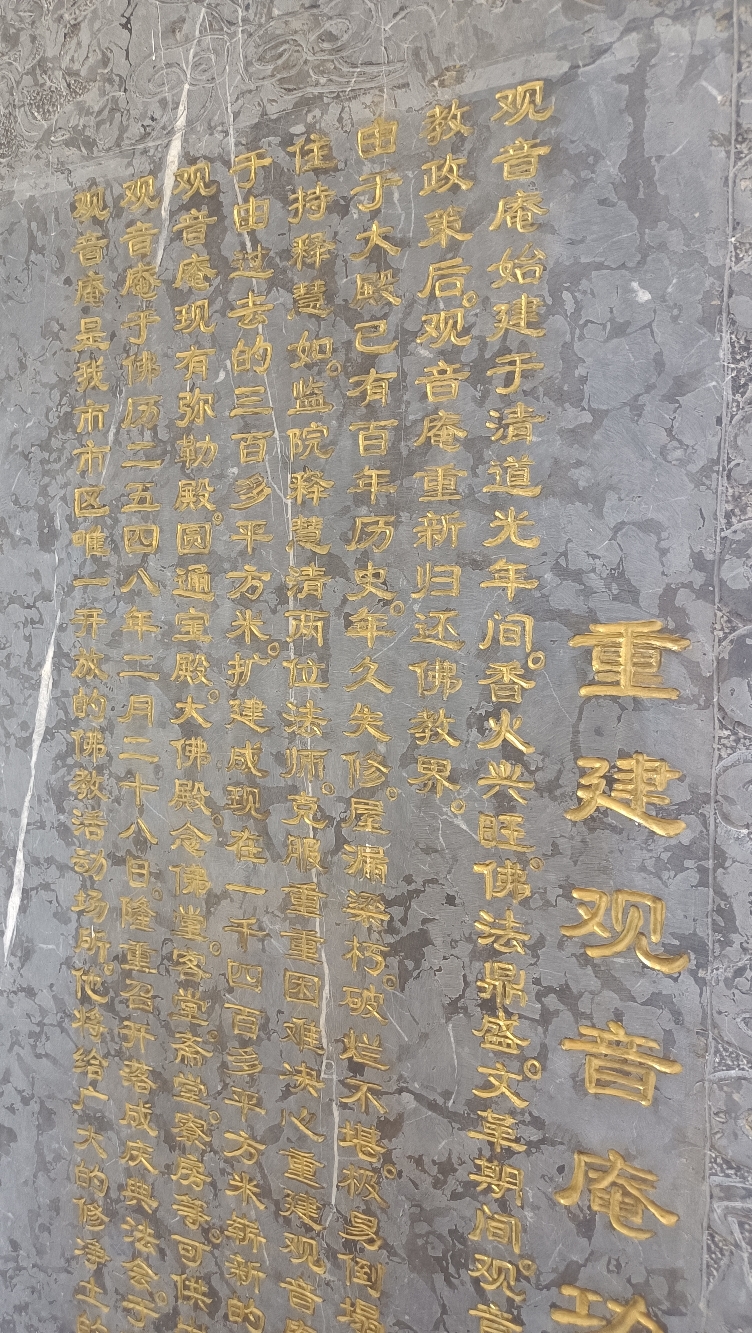 重建观音庵
观音庵始建于清道光年间。香火兴旺。佛法鼎盛。文革期间。观音
教政策后。观音庵重新归还佛教界。
由于大殿已有百年历史。年久失修。屋漏梁朽。破烂不堪。极易倒塌
住持释慧如。监院释慧清两位法师。克服重重困难决心重建观音
于由过去的三百多平方米。扩建成现在一千四百多平方米斩新的
观音庵现有弥勒殿。圆通宝殿。大佛殿。念佛堂。客堂。斋堂。寮房等。可供
观音庵于佛历二五四八年二月二十八日。隆重召开落成庆典法会。于
观音庵是我市市区唯一开放的佛教活动场所。他将给广大的修净土